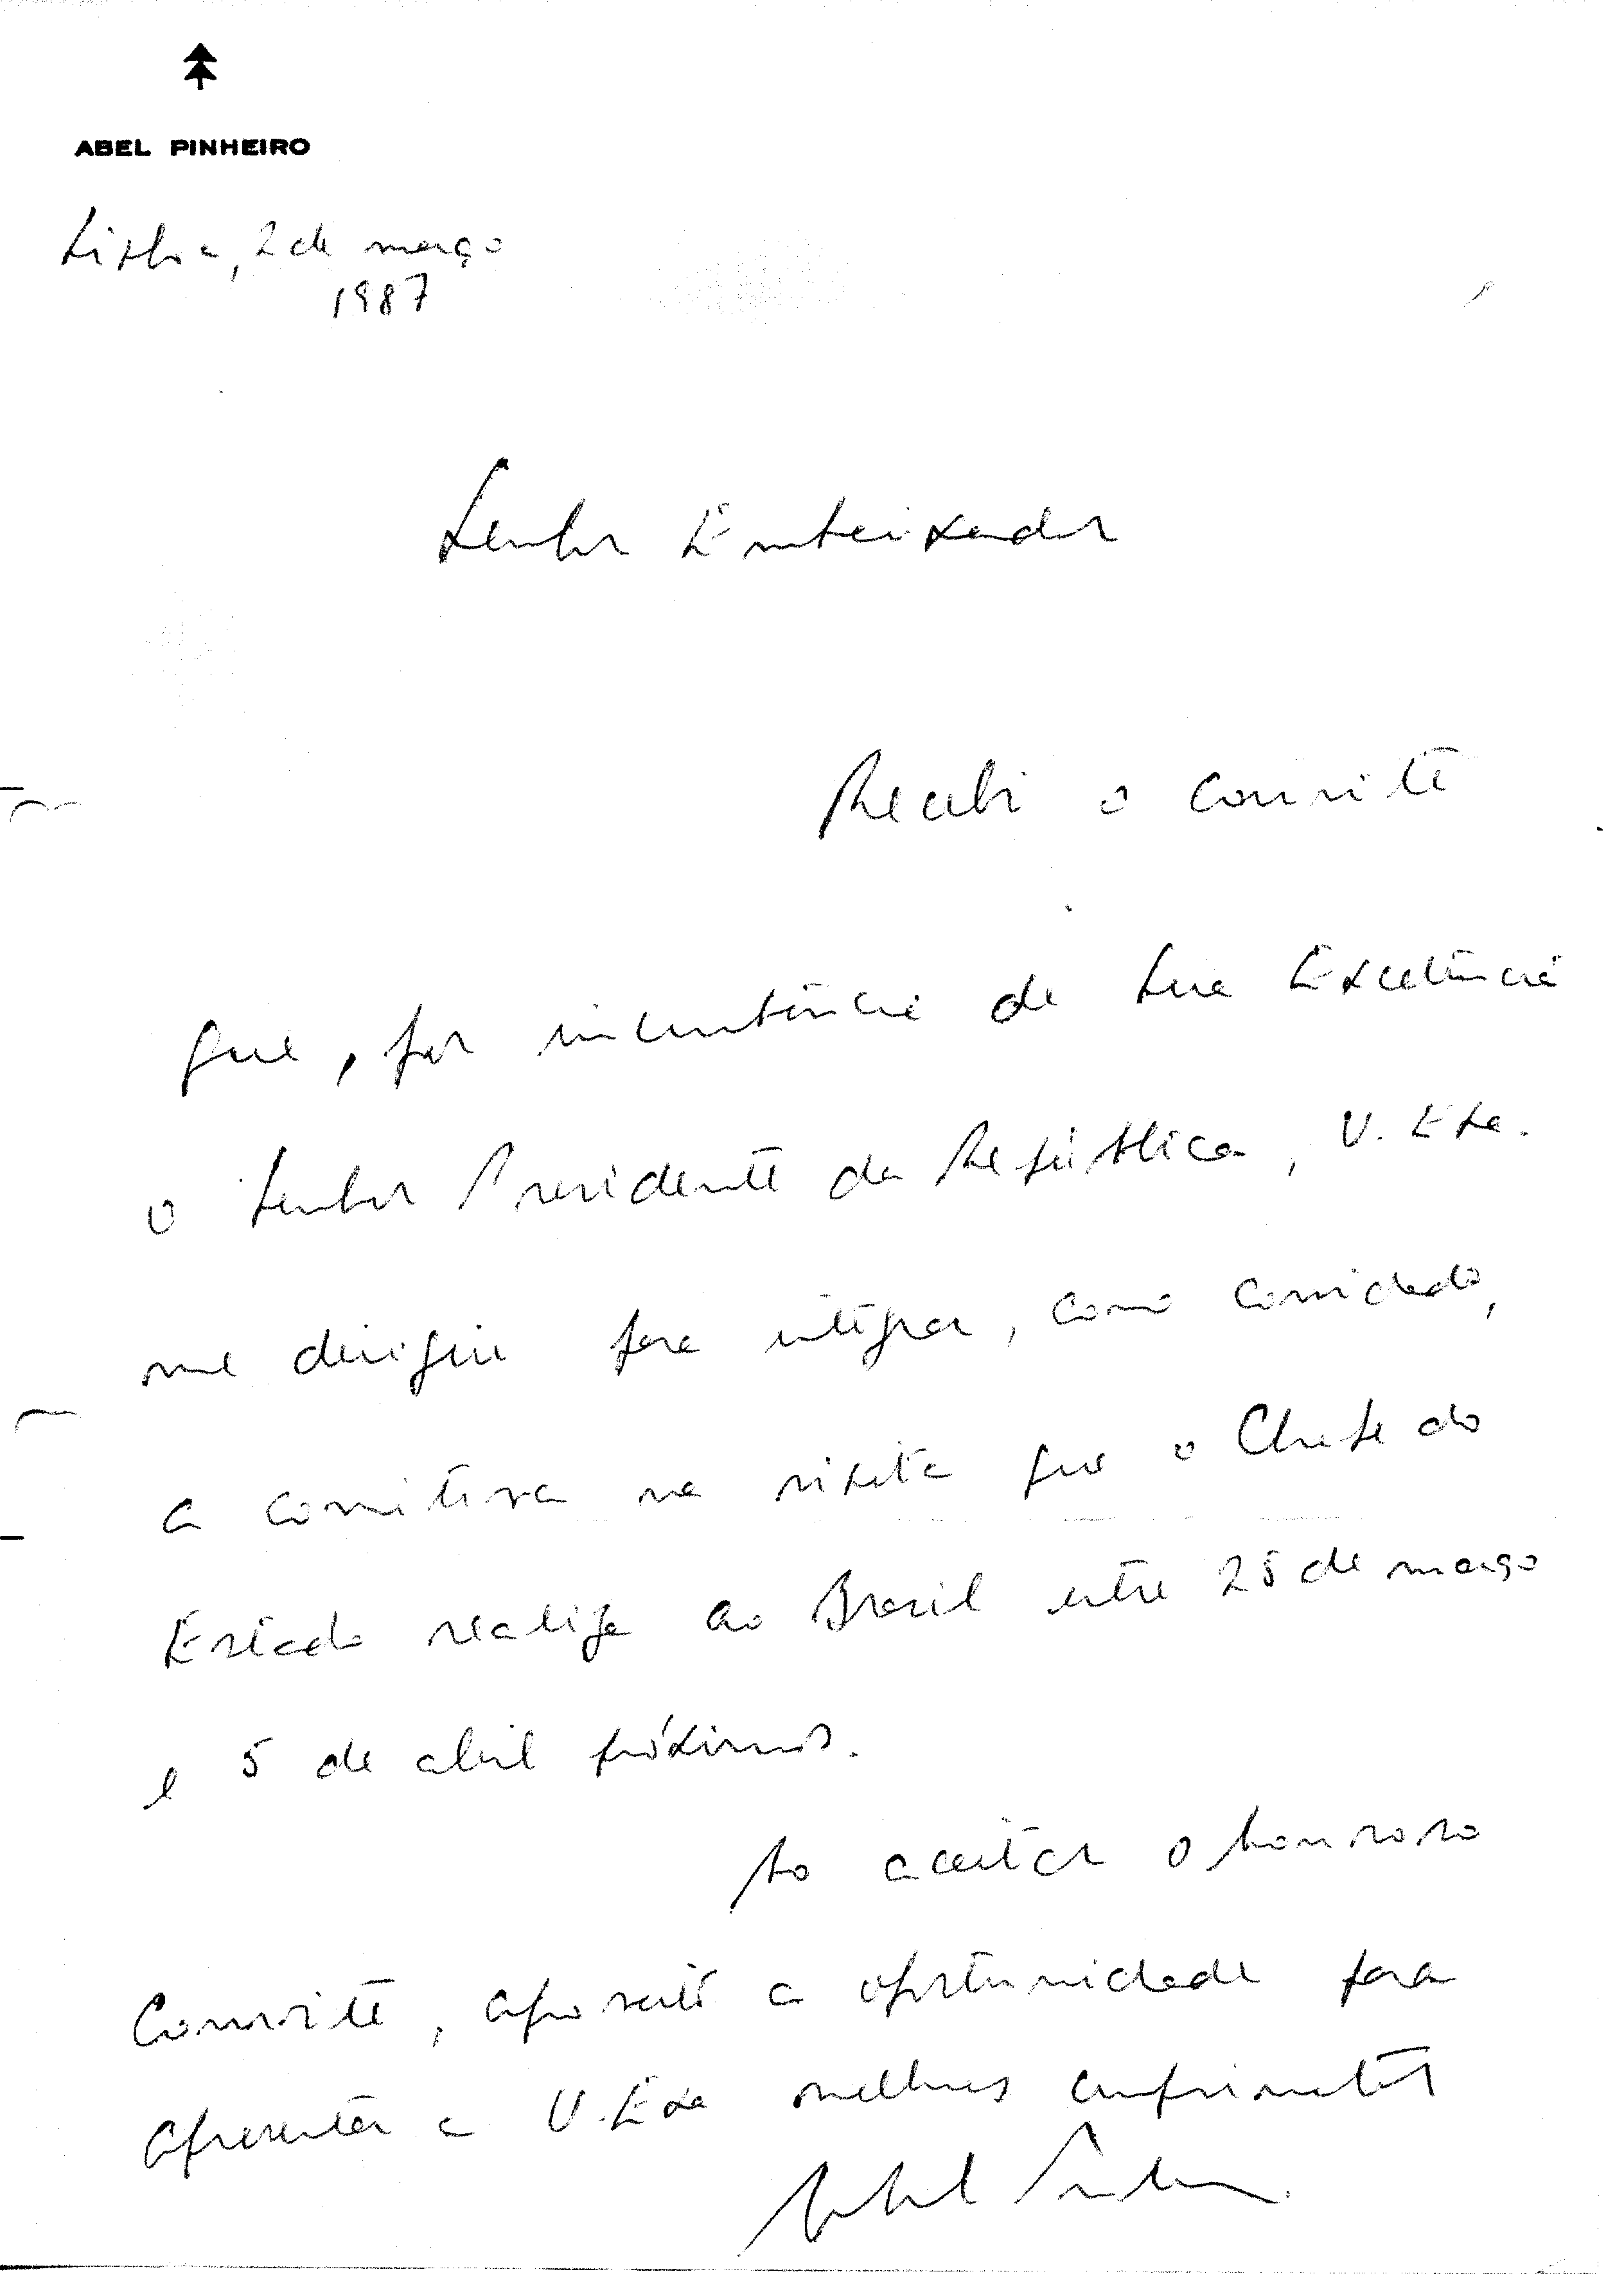 ABEL PINHEIRO
Lisboa, 2 de março
1987
Senhor Embaixador
Recebi o convite
que, por incumbência de Sua Excelência
o Senhor Presidente da República, V. Exa.
me dirigiu para integrar, como convidado,
a comitiva na visita que o Chefe do
Estado realiza ao Brasil entre 25 de março
e 5 de abril próximos.
Ao aceitar o honroso
Convite, aproveito a oportunidade para
apresentar a V. Exa melhores cumprimentos
Abel Pinheiro